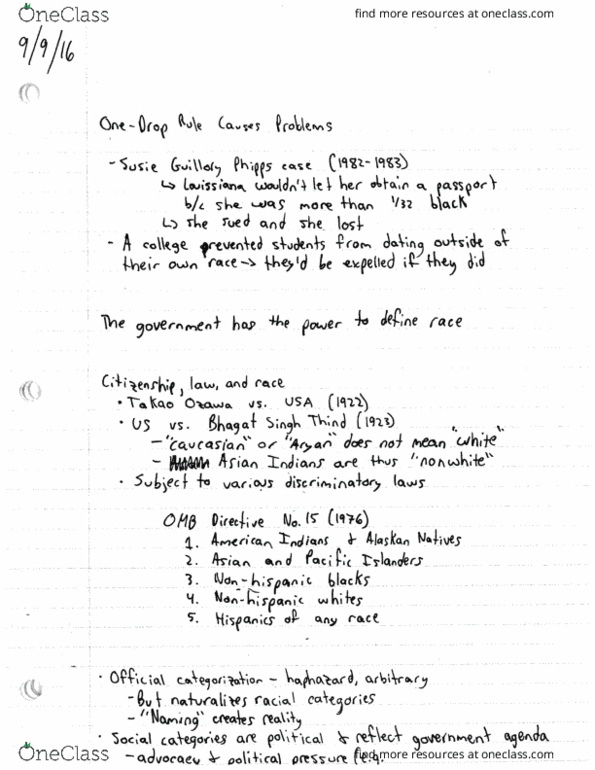 OneClass
find more resources at oneclass.com
9/9/16
One-Drop Rule Causes Problems
- Susie Guillory Phipps case (1982-1983)
↳ Louissiana wouldn't let her obtain a passport
b/c she was more than 1/32 black
↳ she sued and she lost
- A college prevented students from dating outside of
their own race → they'd be expelled if they did
The government has the power to define race
Citizenship, law, and race
• Takao Ozawa vs. USA (1922)
• US vs. Bhagat Singh Thind (1923)
- "caucasian" or "Aryan" does not mean "white"
- Asian Indians are thus "nonwhite"
• Subject to various discriminatory laws
OMB Directive No. 15 (1976)
1. American Indians & Alaskan Natives
2. Asian and Pacific Islanders
3. Non-hispanic blacks
4. Non-hispanic whites
5. Hispanics of any race
• Official categorization - haphazard, arbitrary
- But naturalizes racial categories
- "Naming" creates reality
• Social categories are political & reflect government agenda
- advocacy & political pressure
OneClass
find more resources at oneclass.com